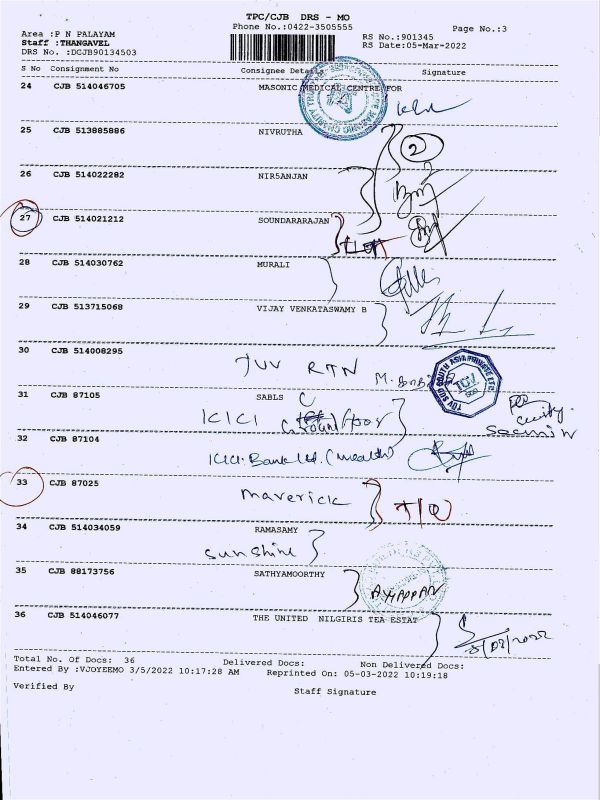 TPC/CJB DRS - MO
Phone No.:0422-3505555
Page No.:3
Area :P N PALAYAM
Staff :THANGAVEL
DRS No. :DCJB90134503
RS No.:901345
RS Date:05-Mar-2022
S No Consignment No Consignee Details Signature
24 CJB 514046705 MASONIC MEDICAL CENTRE FOR
25 CJB 513885886 NIVRUTHA
2
26 CJB 514022282 NIRSANJAN
27 CJB 514021212 SOUNDARARAJAN
28 CJB 514030762 MURALI
29 CJB 513715068 VIJAY VENKATASWAMY B
30 CJB 514008295
TUV RTN
TUV SUD SOUTH ASIA PRIVATE LTD
31 CJB 87105 SABLS
ICICI Ground floor
32 CJB 87104
ICICI Bank Ltd. (wealth)
33 CJB 87025
maverick
34 CJB 514034059 RAMASAMY
sunshine
35 CJB 88173756 SATHYAMOORTHY
AYYAPPAN
36 CJB 514046077 THE UNITED NILGIRIS TEA ESTAT
5/03/2022
Total No. Of Docs: 36 Delivered Docs: Non Delivered Docs:
Entered By :VJOYEEMO 3/5/2022 10:17:28 AM Reprinted On: 05-03-2022 10:19:18
Verified By Staff Signature